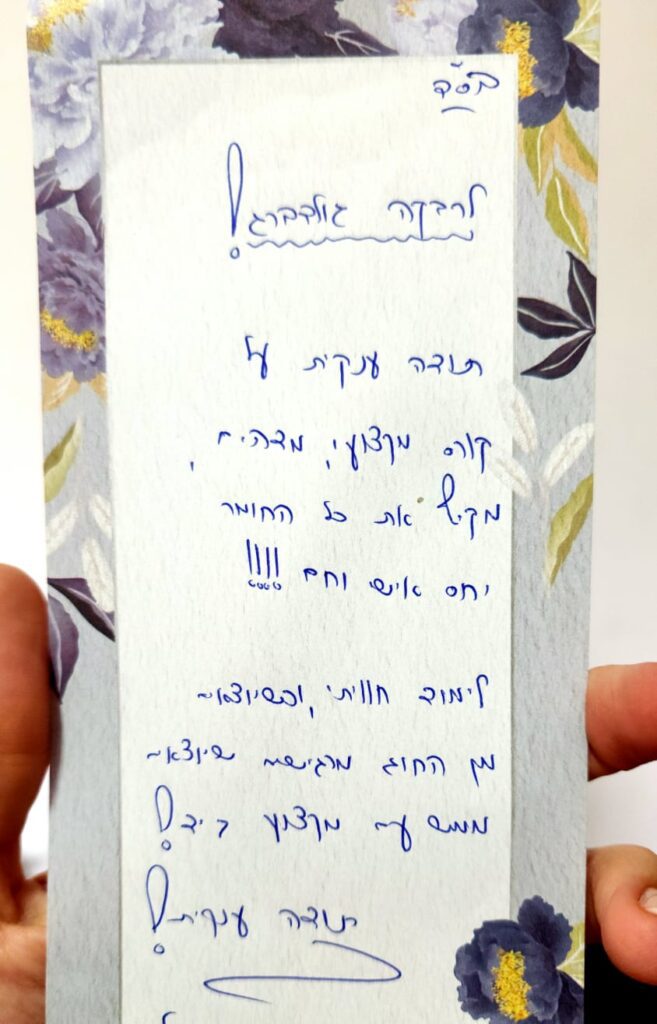 בס"ד
לרבקה גולדברג!
תודה ענקית על
קורס מקצועי, מדהים,
מקיף את כל החומר
יחס אישי וחם !!!!
לימוד חוויתי, וכשיוצאים
מן החוג מרגישים שיוצאים
ממש עם מקצוע ביד!
תודה ענקית!